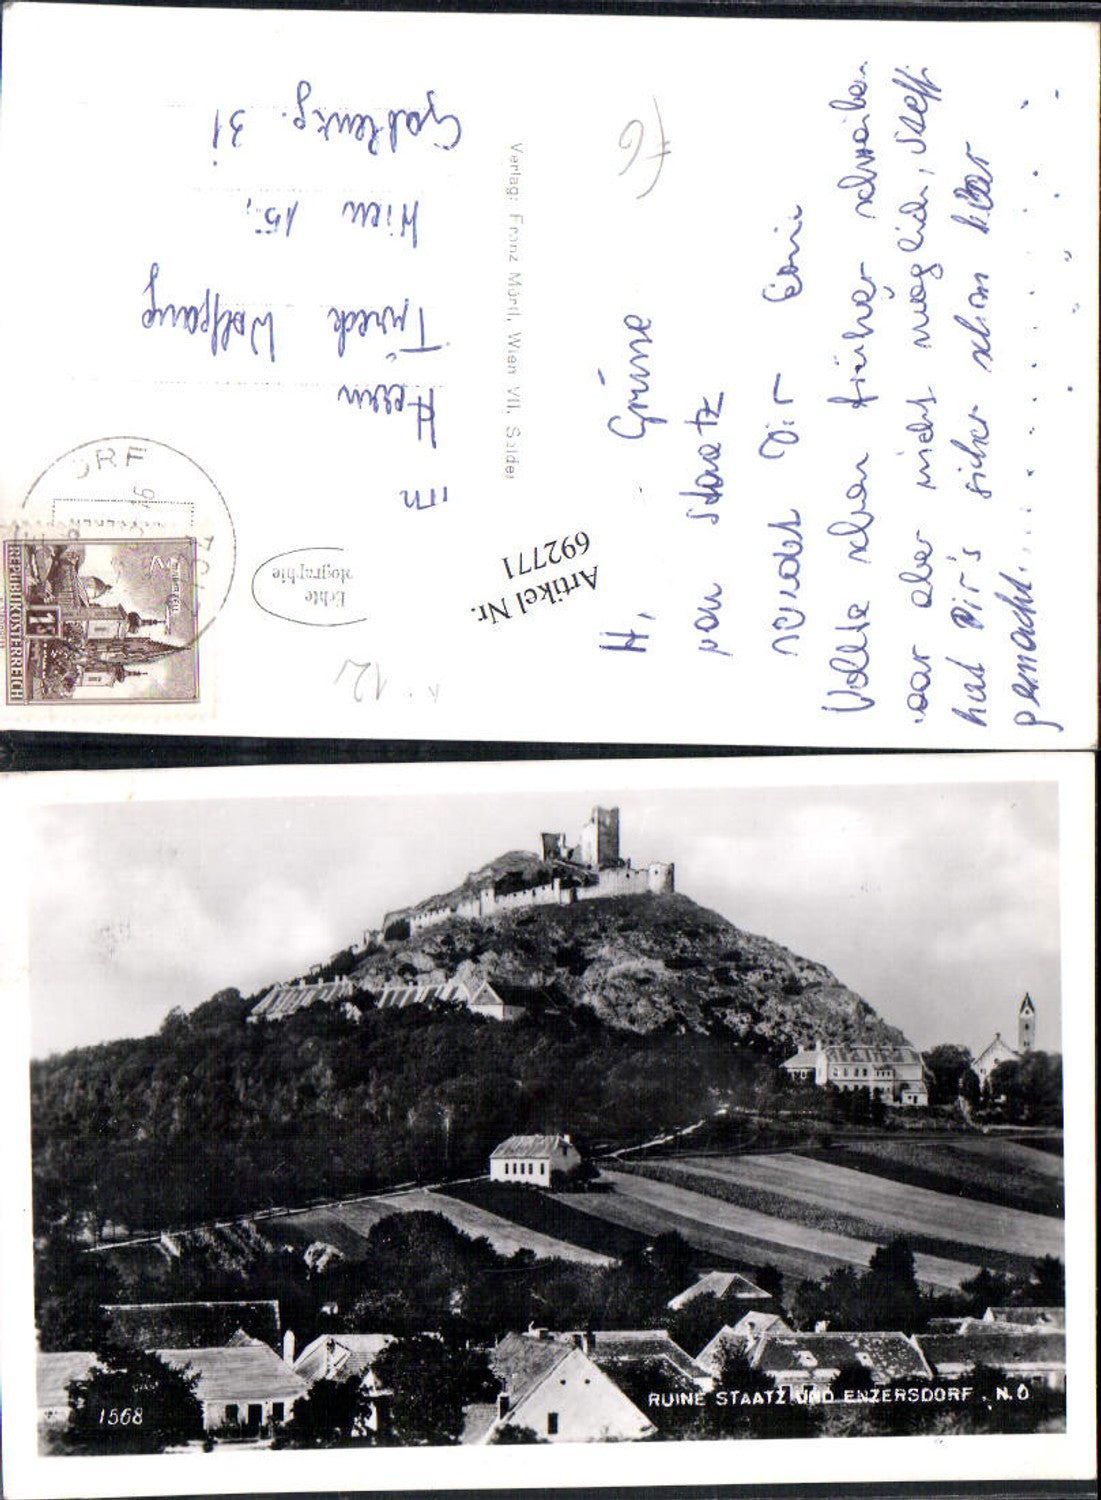 H. Grüsse
von Staatz
sendet Dir Erni
Wollte schon früher schreiben
war aber nicht möglich, Steffi
hat Dir's sicher schon klar
gemacht.....
Verlag: Franz Mörtl, Wien VII,
Echte
Photographie
REPUBLIK ÖSTERREICH
1 S
MARIAZELL
Herrn
Türeck Wolfgang
Wien 15.,
Gablenzg. 31
Artikel Nr.
692771
12
1568
RUINE STAATZ UND ENZERSDORF, N.Ö